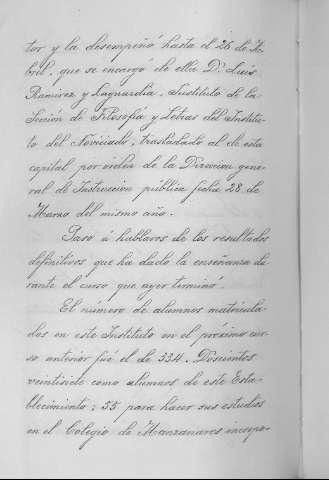 tor y la desempeñó hasta el 26 de A-
bril, que se encargó de ella D. Luis
Ramirez y Laguardia, Sustituto de la
Sección de Filosofía y Letras del Institu-
to del Noviciado, trasladado al de esta
capital por orden de la Direccion gene-
ral de Instruccion pública fecha 28 de
Marzo del mismo año.
Paso á hablaros de los resultados
definitivos que ha dado la enseñanza du-
rante el curso que ayer terminó.
El número de alumnos matricula-
dos en este Instituto en el proximo cur-
so anterior fué el de 334. Doscientos
veintisiete como alumnos de este Esta-
blecimiento; 55 para hacer sus estudios
en el Colegio de Manzanares incorpo-